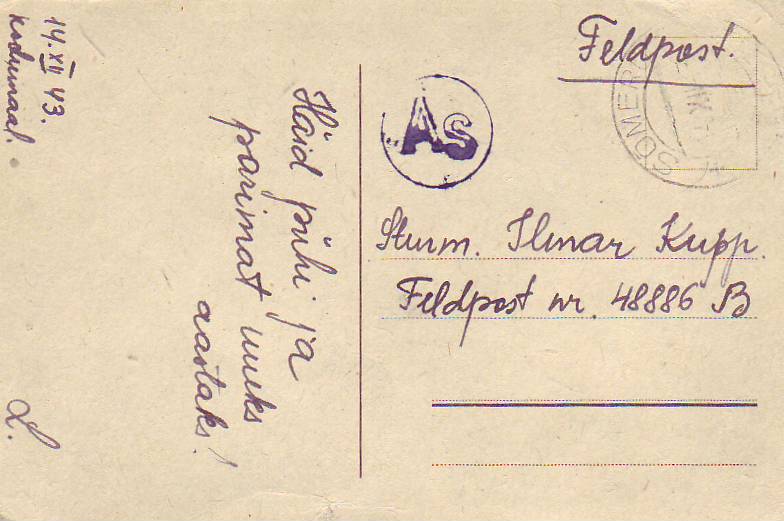 14.XII 43.
kodumaal.
Häid pühi ja
parimat uueks
aastaks!
L.
Feldpost.
AS
SÕMERA
Sturm. Ilmar Kupp.
Feldpost nr. 48886 B